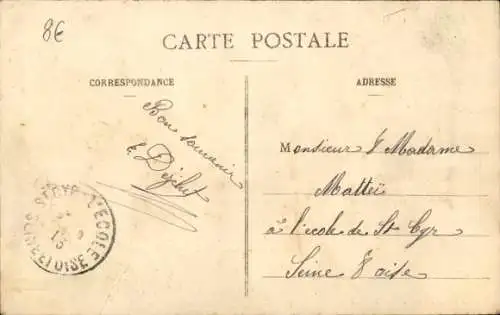 8€
CARTE POSTALE
CORRESPONDANCE
ADRESSE
Bon souvenir
Monsieur & Madame
Matteï
à l'école de St Cyr
Seine & oise
ST CYR-L'ECOLE
SEINE-ET-OISE
13